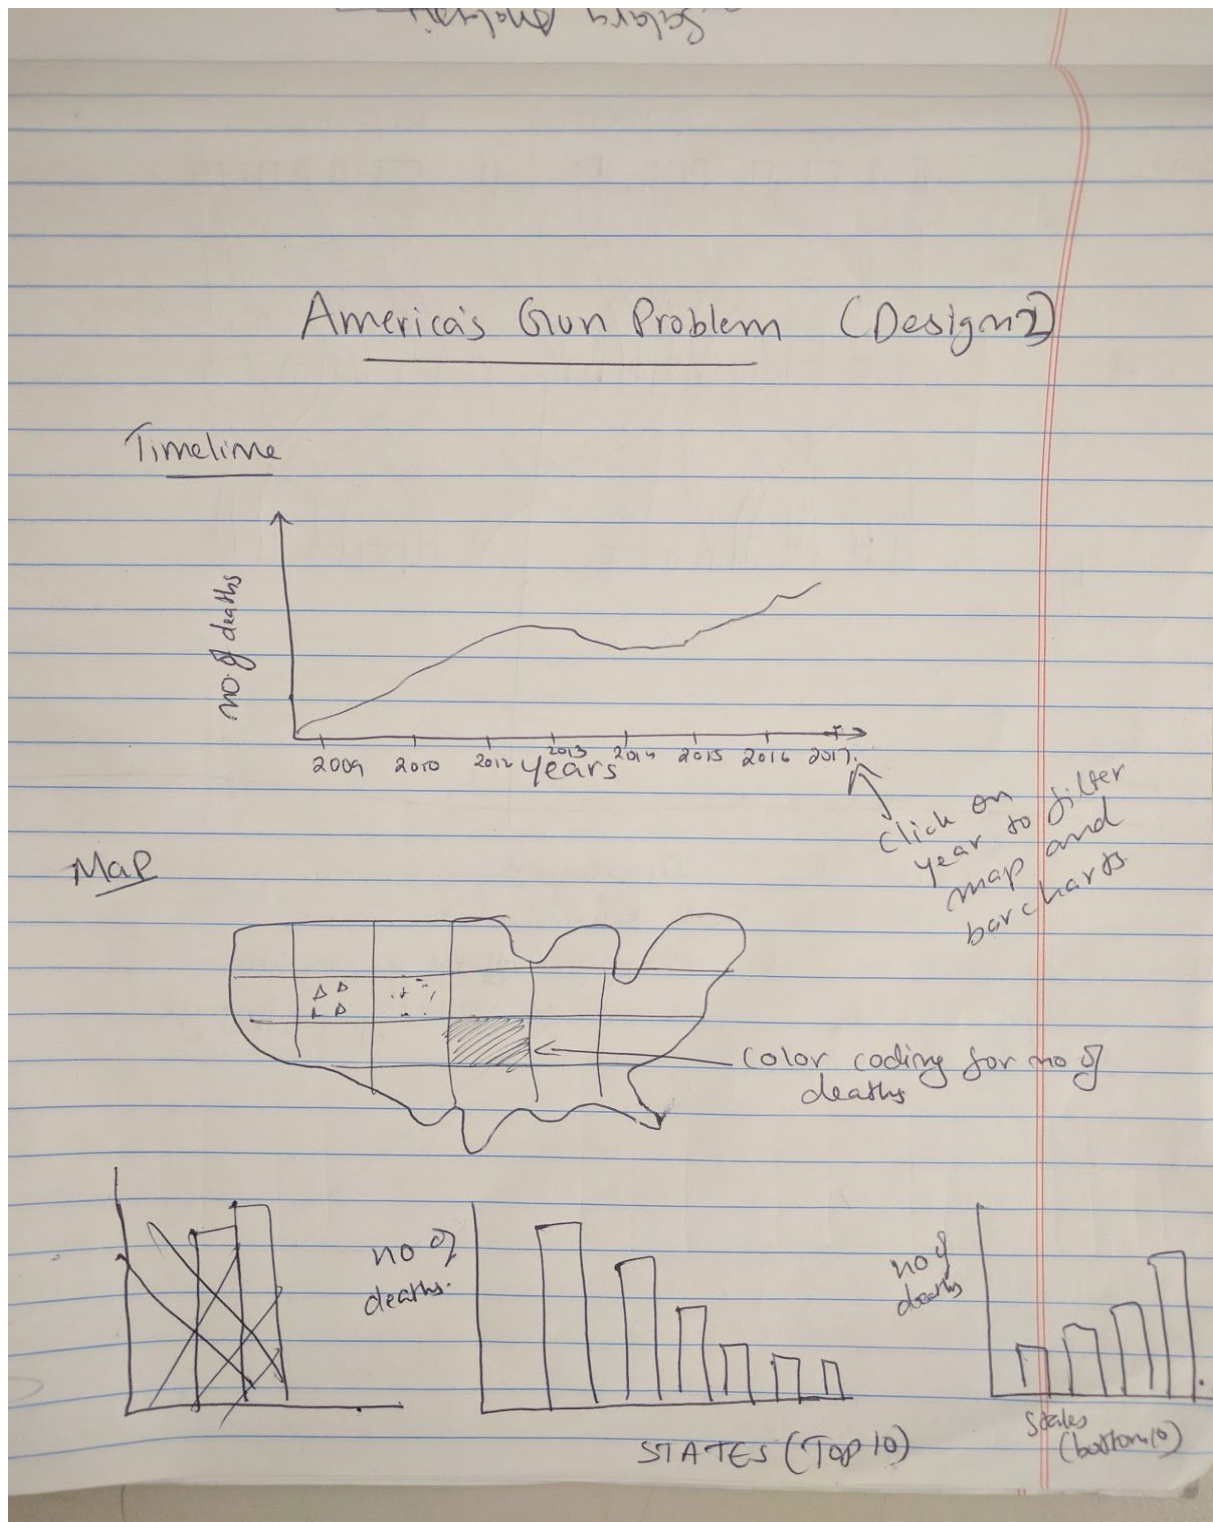 Salary Analysis
America's Gun Problem (Design 2)
Timeline
no. of deaths
2009 2010 2012 2013 2014 2015 2016 2017
years
Click on
year to filter
map and
barcharts
Map
color coding for no of
deaths
no of
deaths.
STATES (Top 10)
no of
deaths
States
(bottom 10)